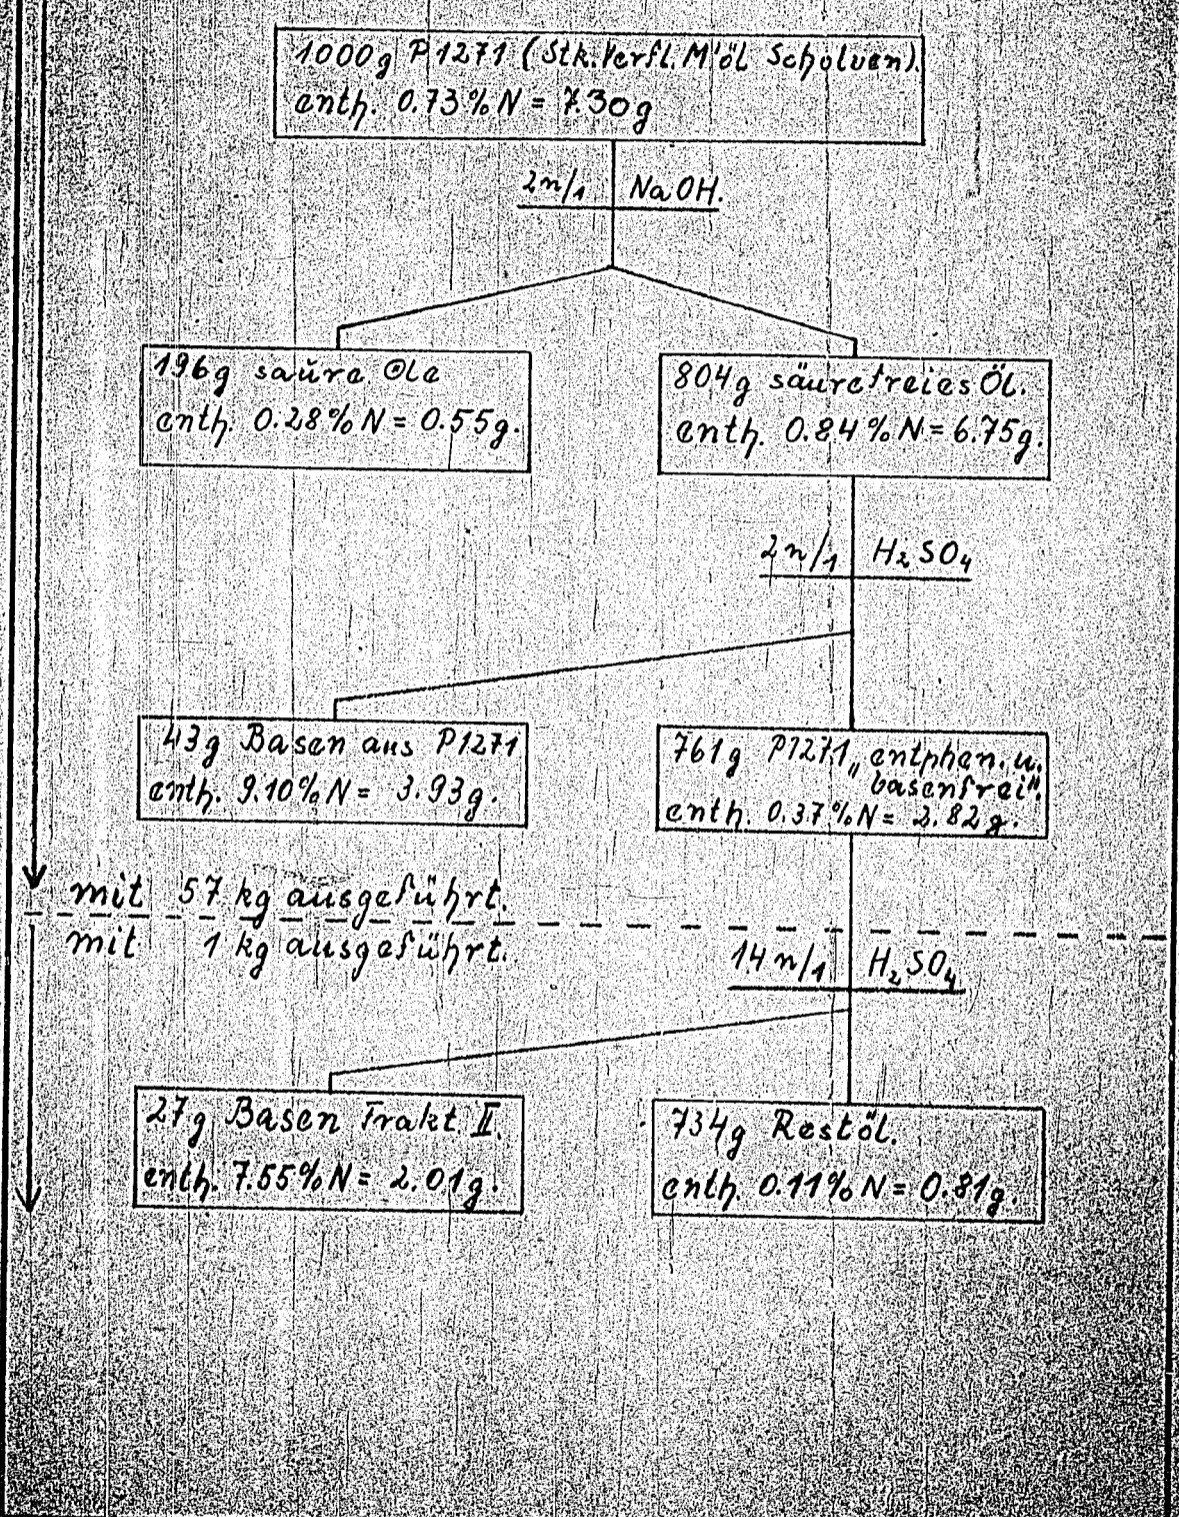 1000g P1271 (Stk.Verfl. M'öl Scholven).
enth. 0.73% N = 7.30g
2n/1 NaOH.
196g saŭre Öle
enth. 0.28% N = 0.55g.
804g säurefreies Öl.
enth. 0.84% N = 6.75g.
2n/1 H₂SO₄
43g Basen aus P1271
enth. 9.10% N = 3.93g.
761g P1271 „entphen. u.
basenfrei".
enth. 0.37% N = 2.82g.
mit 57 kg ausgeführt.
mit 1 kg ausgeführt.
14n/1 H₂SO₄
27g Basen Frakt. II.
enth. 7.55% N = 2.01g.
734g Restöl.
enth. 0.11% N = 0.81g.